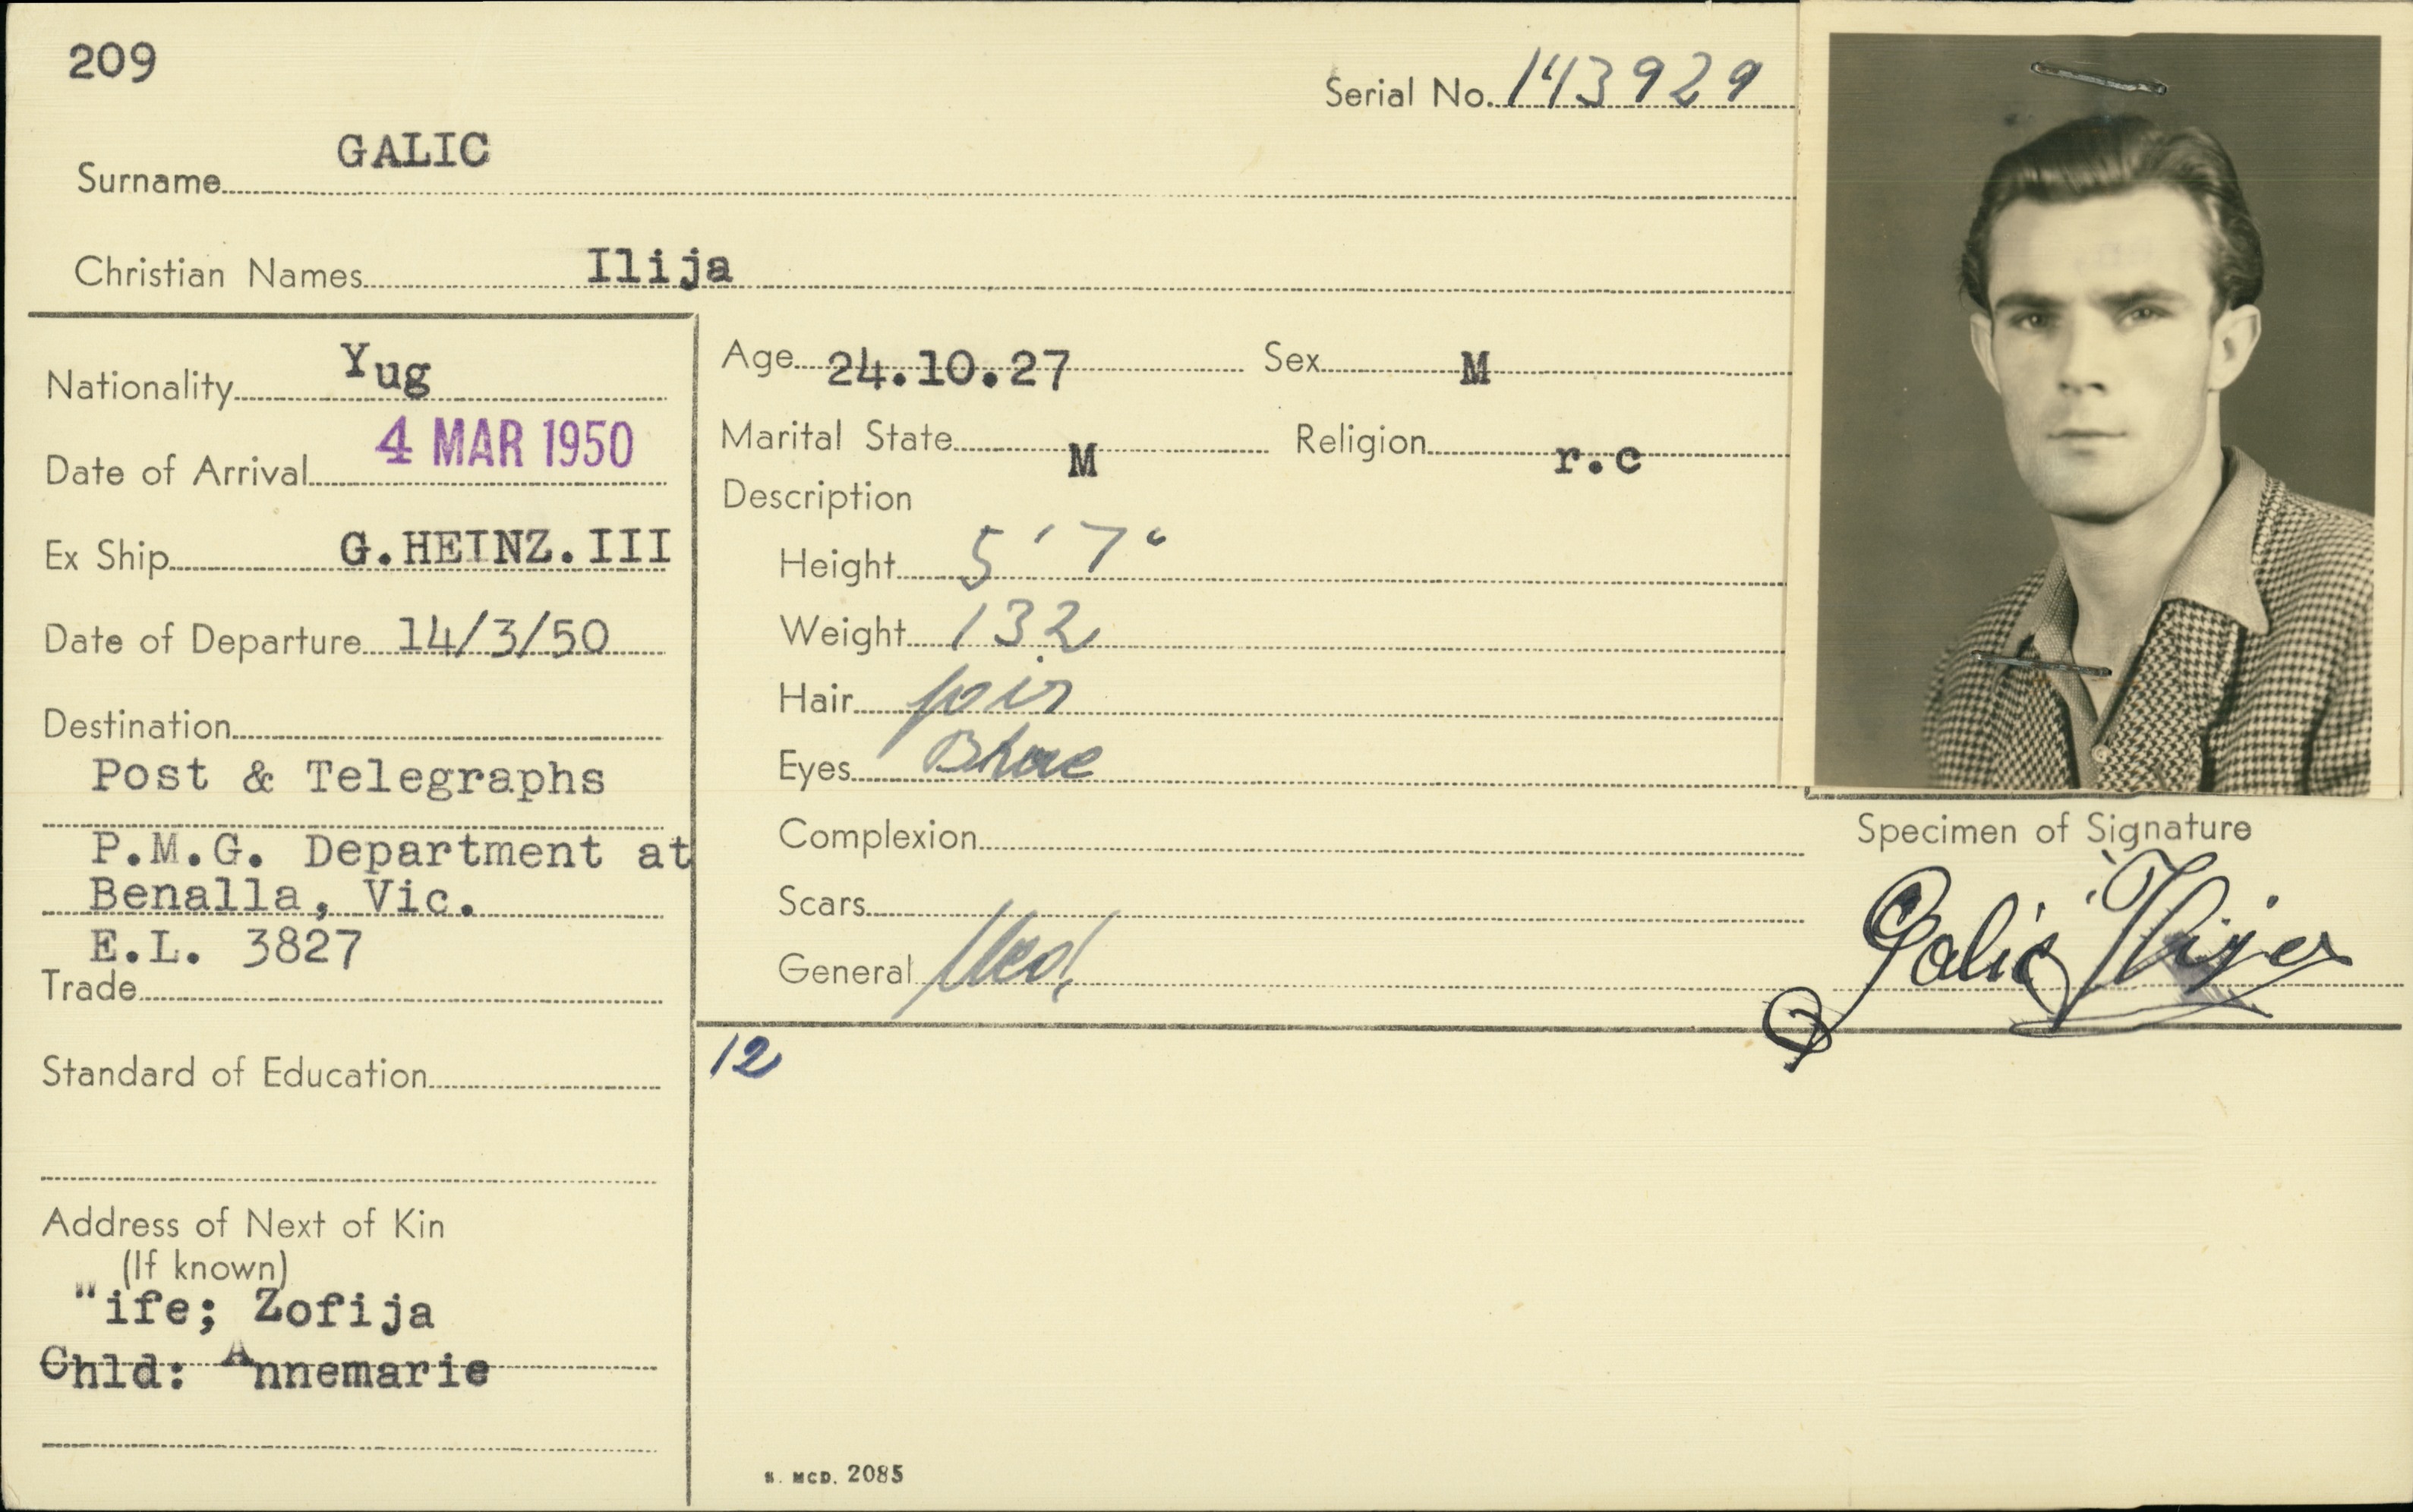 209
Serial No. 143929
Surname GALIC
Christian Names Ilija
Nationality Yug
Date of Arrival 4 MAR 1950
Ex Ship G.HEINZ.III
Date of Departure 14/3/50
Destination
Post & Telegraphs
P.M.G. Department at
Benalla, Vic.
E.L. 3827
Trade
Standard of Education
Address of Next of Kin
(If known)
"ife; Zofija
Chld: Annemarie
Age 24.10.27 Sex M
Marital State M Religion r.c
Description
Height 5'7"
Weight 132
Hair
Eyes
Complexion
Scars
General
12
S. MCD. 2085
Specimen of Signature
Galic Ilija